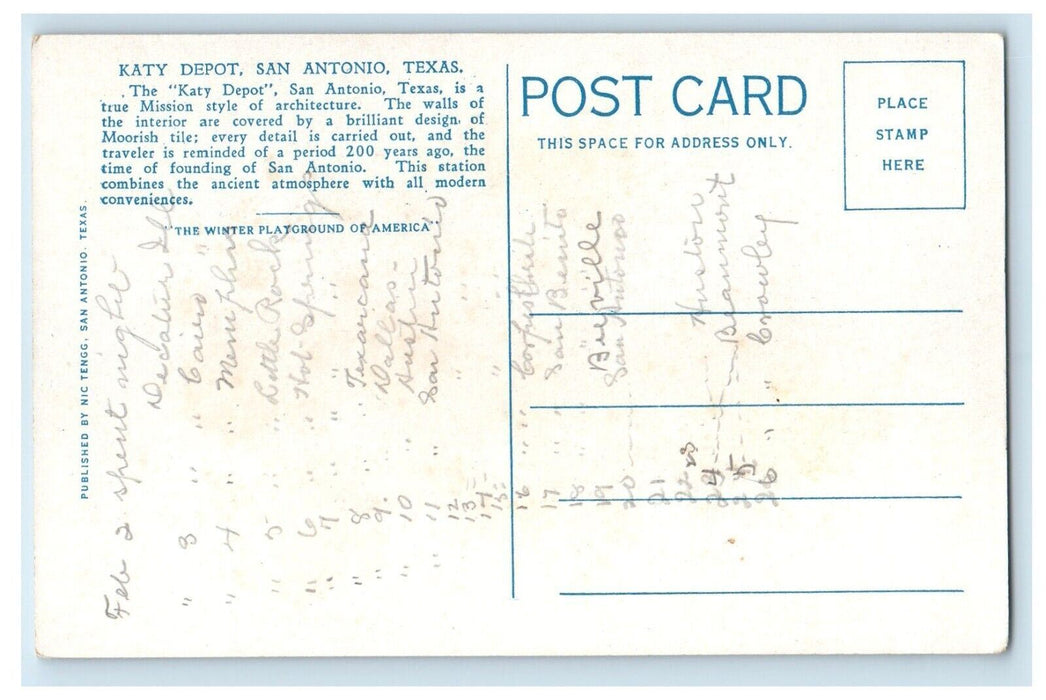 KATY DEPOT, SAN ANTONIO, TEXAS.
The "Katy Depot", San Antonio, Texas, is a
true Mission style of architecture. The walls of
the interior are covered by a brilliant design of
Moorish tile; every detail is carried out, and the
traveler is reminded of a period 200 years ago, the
time of founding of San Antonio. This station
combines the ancient atmosphere with all modern
conveniences.
"THE WINTER PLAYGROUND OF AMERICA"
PUBLISHED BY NIC TENGG, SAN ANTONIO, TEXAS
POST CARD
THIS SPACE FOR ADDRESS ONLY.
PLACE
STAMP
HERE
Feb 2 spent night
Decatur Ill
" 3 " Cairo
" 4 " " Memphis
" 5 " " Little Rock
" 6 " " Hot Springs
" 7 " " "
" 8 " Texarcana
" 9. Dallas
" 10 " Austin
" 11 " San Antonio
12 "
13
14
15 "
16 " " Corpus Christi
17 " " San Benito
18 " " "
19 Beeville
20 San Antonio
21
22
23
24 Huston
25 Beaumont
26 " Crowley